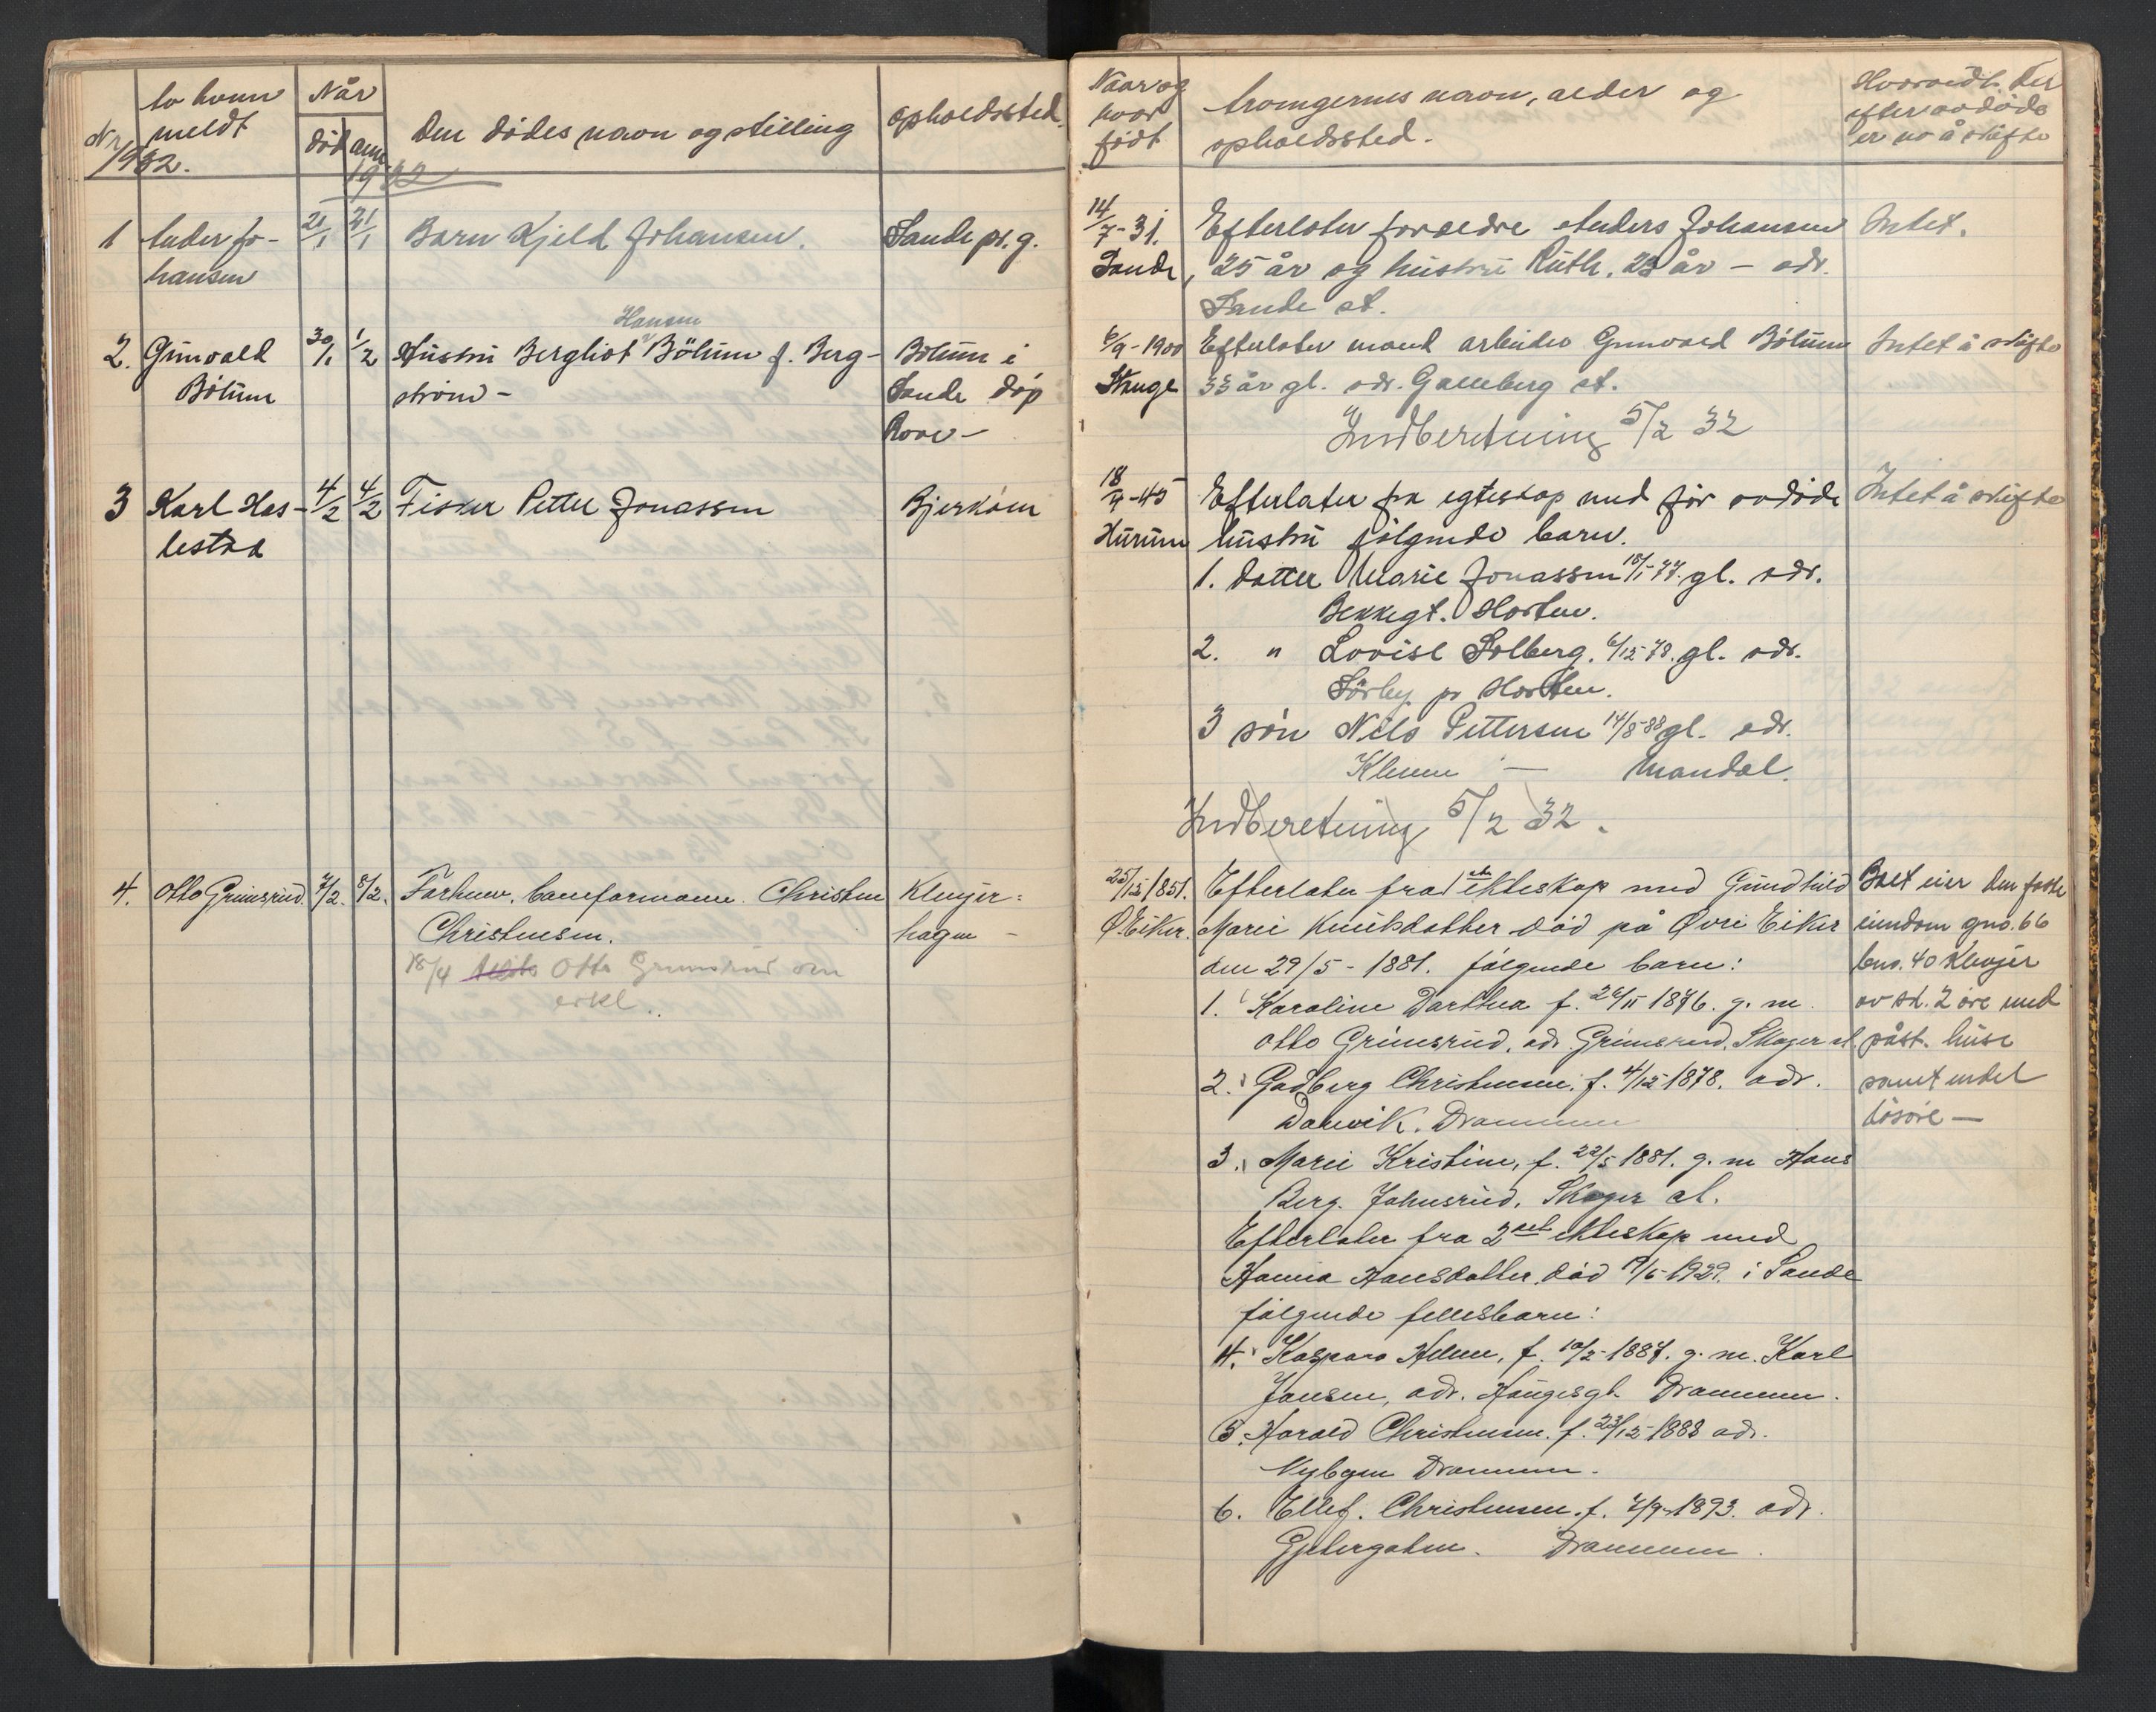 Nr
1932.
av hvem
meldt
Når
død
anm
1932
Den dødes navn og stilling
opholdssted.
1
Anders Jo-
hansen
21/1
21/1
Barn Kjeld Johansen.
Sande pr.g.
2.
Gunvald
Bölum
30/1
1/2
Hansen
Hustru Bergliot Bölum f. Berg-
strøm -
Bölum i
Sande døp
3
Karl Has-
lestad
4/2
4/2
Fisker Petter Jonassen
Bjerkøen
4.
Otto Grimsrud.
7/2.
8/2.
Forhenv. baneformann Christen
Christensen.
18/4 Otto Grimsrud om
erkl.
Klevjer=
hagen -
Naar og
hvor
født
Arvingernes navn, alder og
opholdssted.
Hvorvidt der
efter avdøde
er no å skifte
14/7-31.
Sande,
Efterlater foreldre Anders Johansen
25 år og hustru Ruth, 23 år - adr.
Sande st.
Intet.
6/9-1900
Stange
Efterlater mand arbeider Gunvald Bölum
33 år gl. adr. Galleberg st.
Indberetning 5/2 32
Intet å skifte
18/4-45
Hurum
Efterlater fra egteskap med før avdøde
hustru følgende barn.
1. datter Marie Jonassen 18/1-77. gl. adr.
Bekkegt. Horten.
2. " Lovise Solberg. 6/12-78. gl. adr.
Sörby pr Horten.
3 søn Nils Pettersen 14/8-88 gl. adr.
Kleven - Mandal.
Indberetning 5/2 32.
Intet å skifte
25/12-1851.
Ø. Eiker.
Efterlater fra 1ste ekteskap med Gundhild
Marie Knutsdatter død på Øvre Eiker
den 29/5-1881. følgende barn:
1. Karoline Dorthea f. 26/11 1876. g. m.
Otto Grimsrud, adr. Grimsrud, Skoger st.
2. Gadberg Christensen, f. 4/12-1878. adr.
Danvik. Drammen
3. Marie Kristine, f. 22/5 1881. g. m Hans
Berg. Johnsrud, Skoger st.
Efterlater fra 2net ekteskap med
Hanna Hansdatter, død 9/6-1929. i Sande
følgende fellesbarn:
4. Kaspara Helene, f. 10/2-1887. g. m. Karl
Jansen, adr. Haugesgt. Drammen.
5. Harald Christensen. f. 23/12-1888 adr.
Nybyen Drammen.
6. Ellef. Christensen. f. 7/9-1893. adr.
Gjetergaten. Drammen.
Boet eier den faste
eiendom gno. 66
bno. 40 Klevjer
av sk. 2 øre med
påst. huse
samt endel
løsøre -